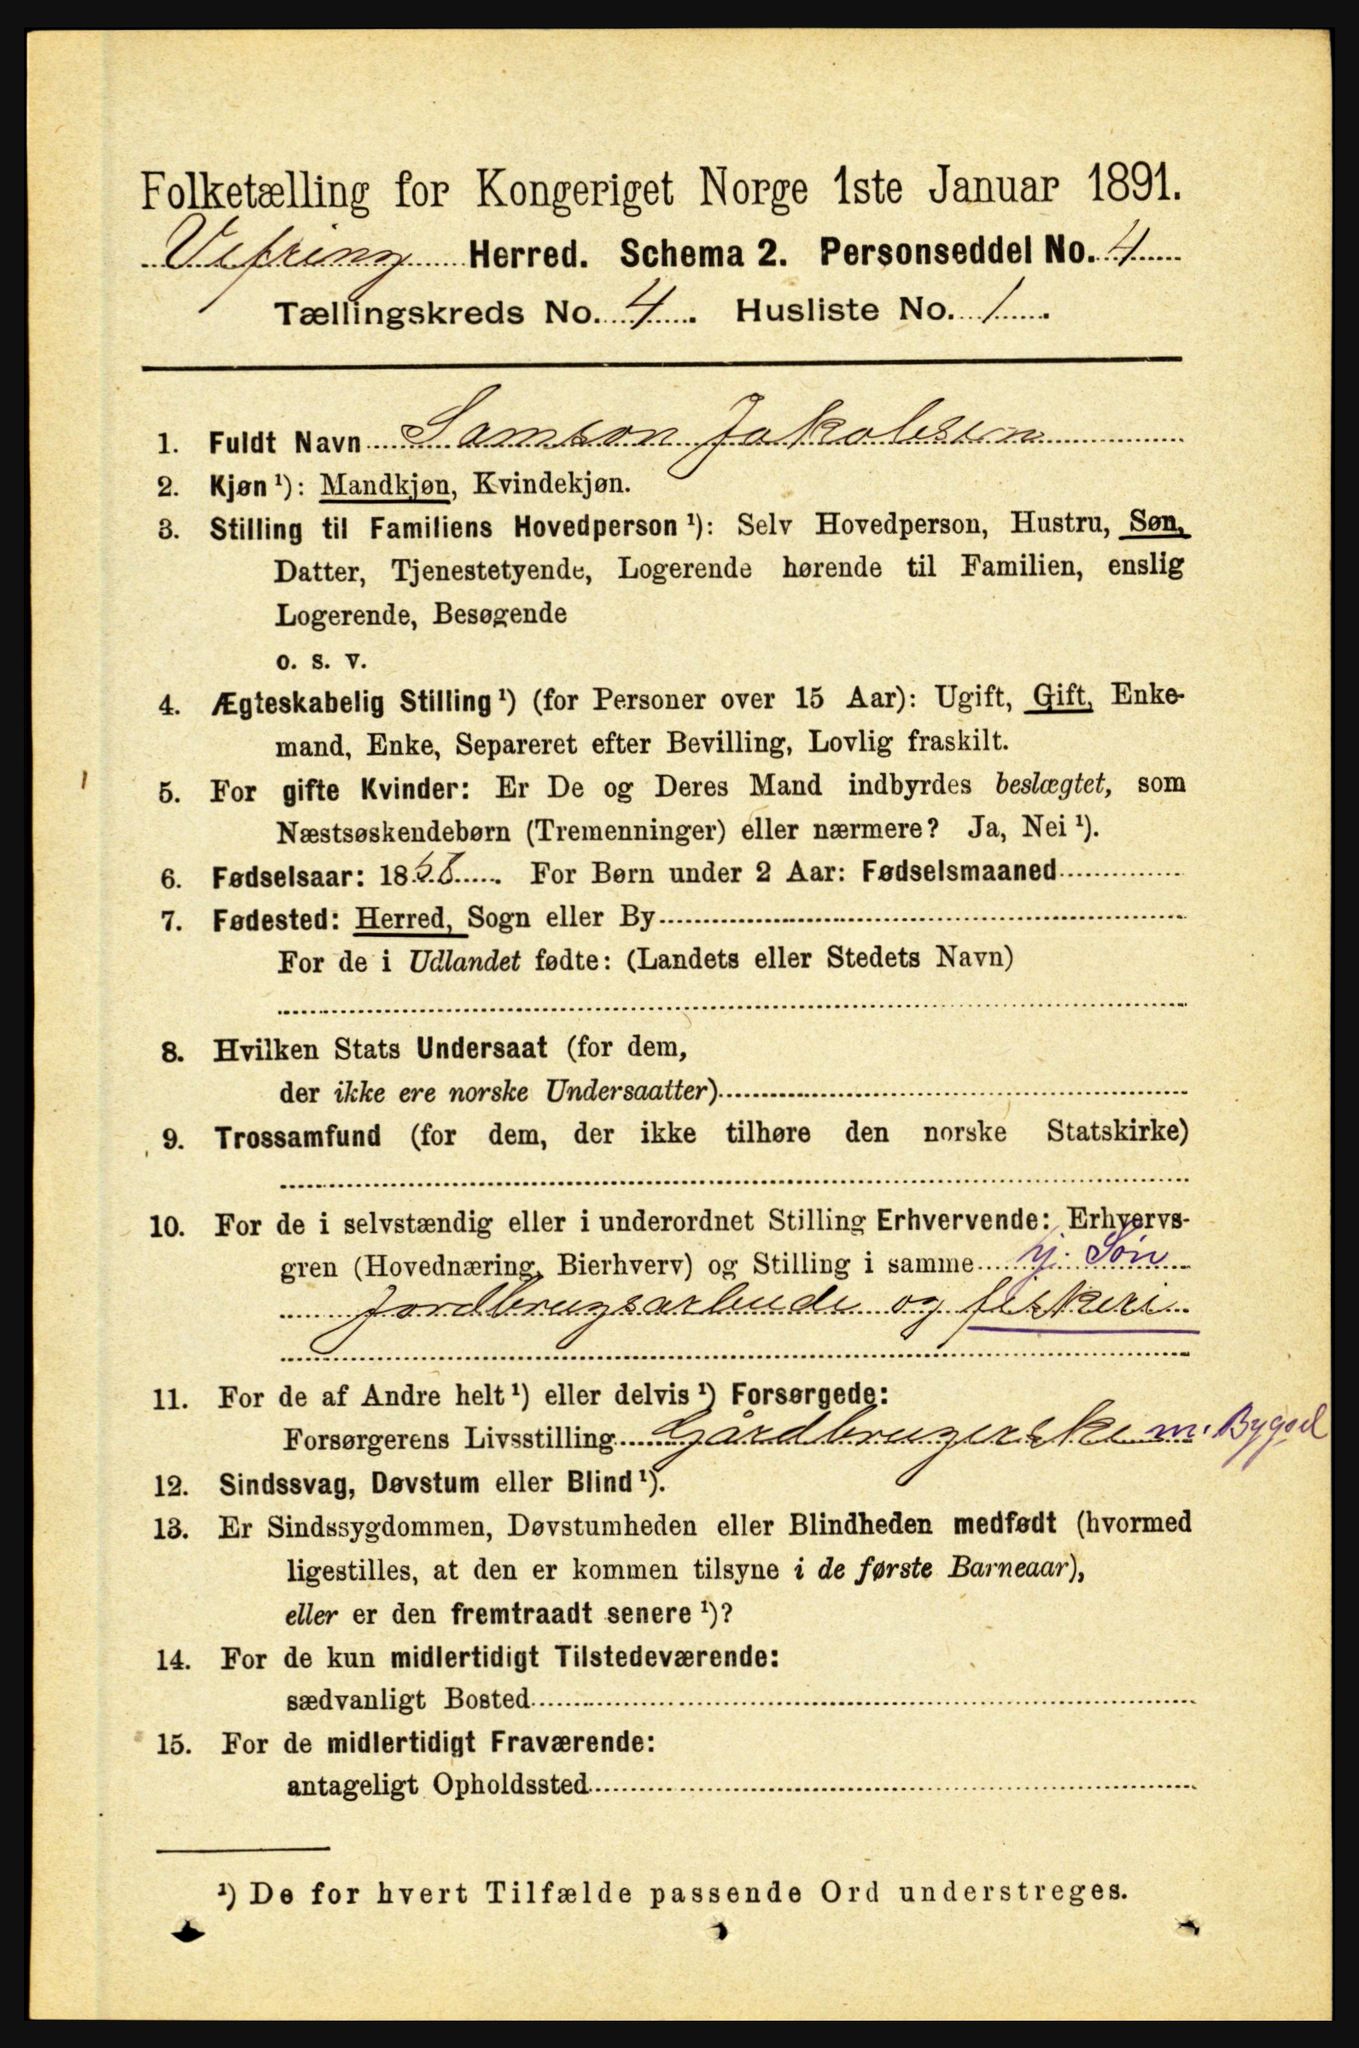 Folketælling for Kongeriget Norge 1ste Januar 1891.
Vefring Herred. Schema 2. Personseddel No. 4
Tællingskreds No. 4. Husliste No. 1.
1. Fuldt Navn Samson Jakobsen
2. Kjøn ¹): Mandkjøn, Kvindekjøn.
3. Stilling til Familiens Hovedperson ¹): Selv Hovedperson, Hustru, Søn,
Datter, Tjenestetyende, Logerende hørende til Familien, enslig
Logerende, Besøgende
o. s. v.
4. Ægteskabelig Stilling ¹) (for Personer over 15 Aar): Ugift, Gift, Enke-
mand, Enke, Separeret efter Bevilling, Lovlig fraskilt.
5. For gifte Kvinder: Er De og Deres Mand indbyrdes beslægtet, som
Næstsøskendebørn (Tremenninger) eller nærmere? Ja, Nei ¹).
6. Fødselsaar: 18 . For Børn under 2 Aar: Fødselsmaaned
7. Fødested: Herred, Sogn eller By
For de i Udlandet fødte: (Landets eller Stedets Navn)
8. Hvilken Stats Undersaat (for dem,
der ikke ere norske Undersaatter)
9. Trossamfund (for dem, der ikke tilhøre den norske Statskirke)
10. For de i selvstændig eller i underordnet Stilling Erhvervende: Erhvervs-
gren (Hovednæring, Bierhverv) og Stilling i samme hj. Søn
Jordbrugsarbeide og fiskeri
11. For de af Andre helt ¹) eller delvis ¹) Forsørgede:
Forsørgerens Livsstilling Gårdbrugerske m. Bygsel
12. Sindssvag, Døvstum eller Blind ¹).
13. Er Sindssygdommen, Døvstumheden eller Blindheden medfødt (hvormed
ligestilles, at den er kommen tilsyne i de første Barneaar),
eller er den fremtraadt senere ¹)?
14. For de kun midlertidigt Tilstedeværende:
sædvanligt Bosted
15. For de midlertidigt Fraværende:
antageligt Opholdssted
¹) De for hvert Tilfælde passende Ord understreges.